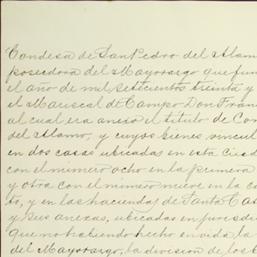 Condesa de San Pedro del Álamo
poseedora del Mayorazgo que fun
el año de mil setecientos treinta y
el Mariscal de Campo Don Fran
al cual era anexo el título de Con
del Álamo, y cuyos bienes vincul
en dos casas ubicadas en esta Ciud
con el número ocho en la primera
y otra con el número nueve en la ca
to, y en las haciendas de Santa Ca
y sus anexas, ubicadas en jurisdi
que no habiendo hecho en vida la
del Mayorazgo, la división de los b